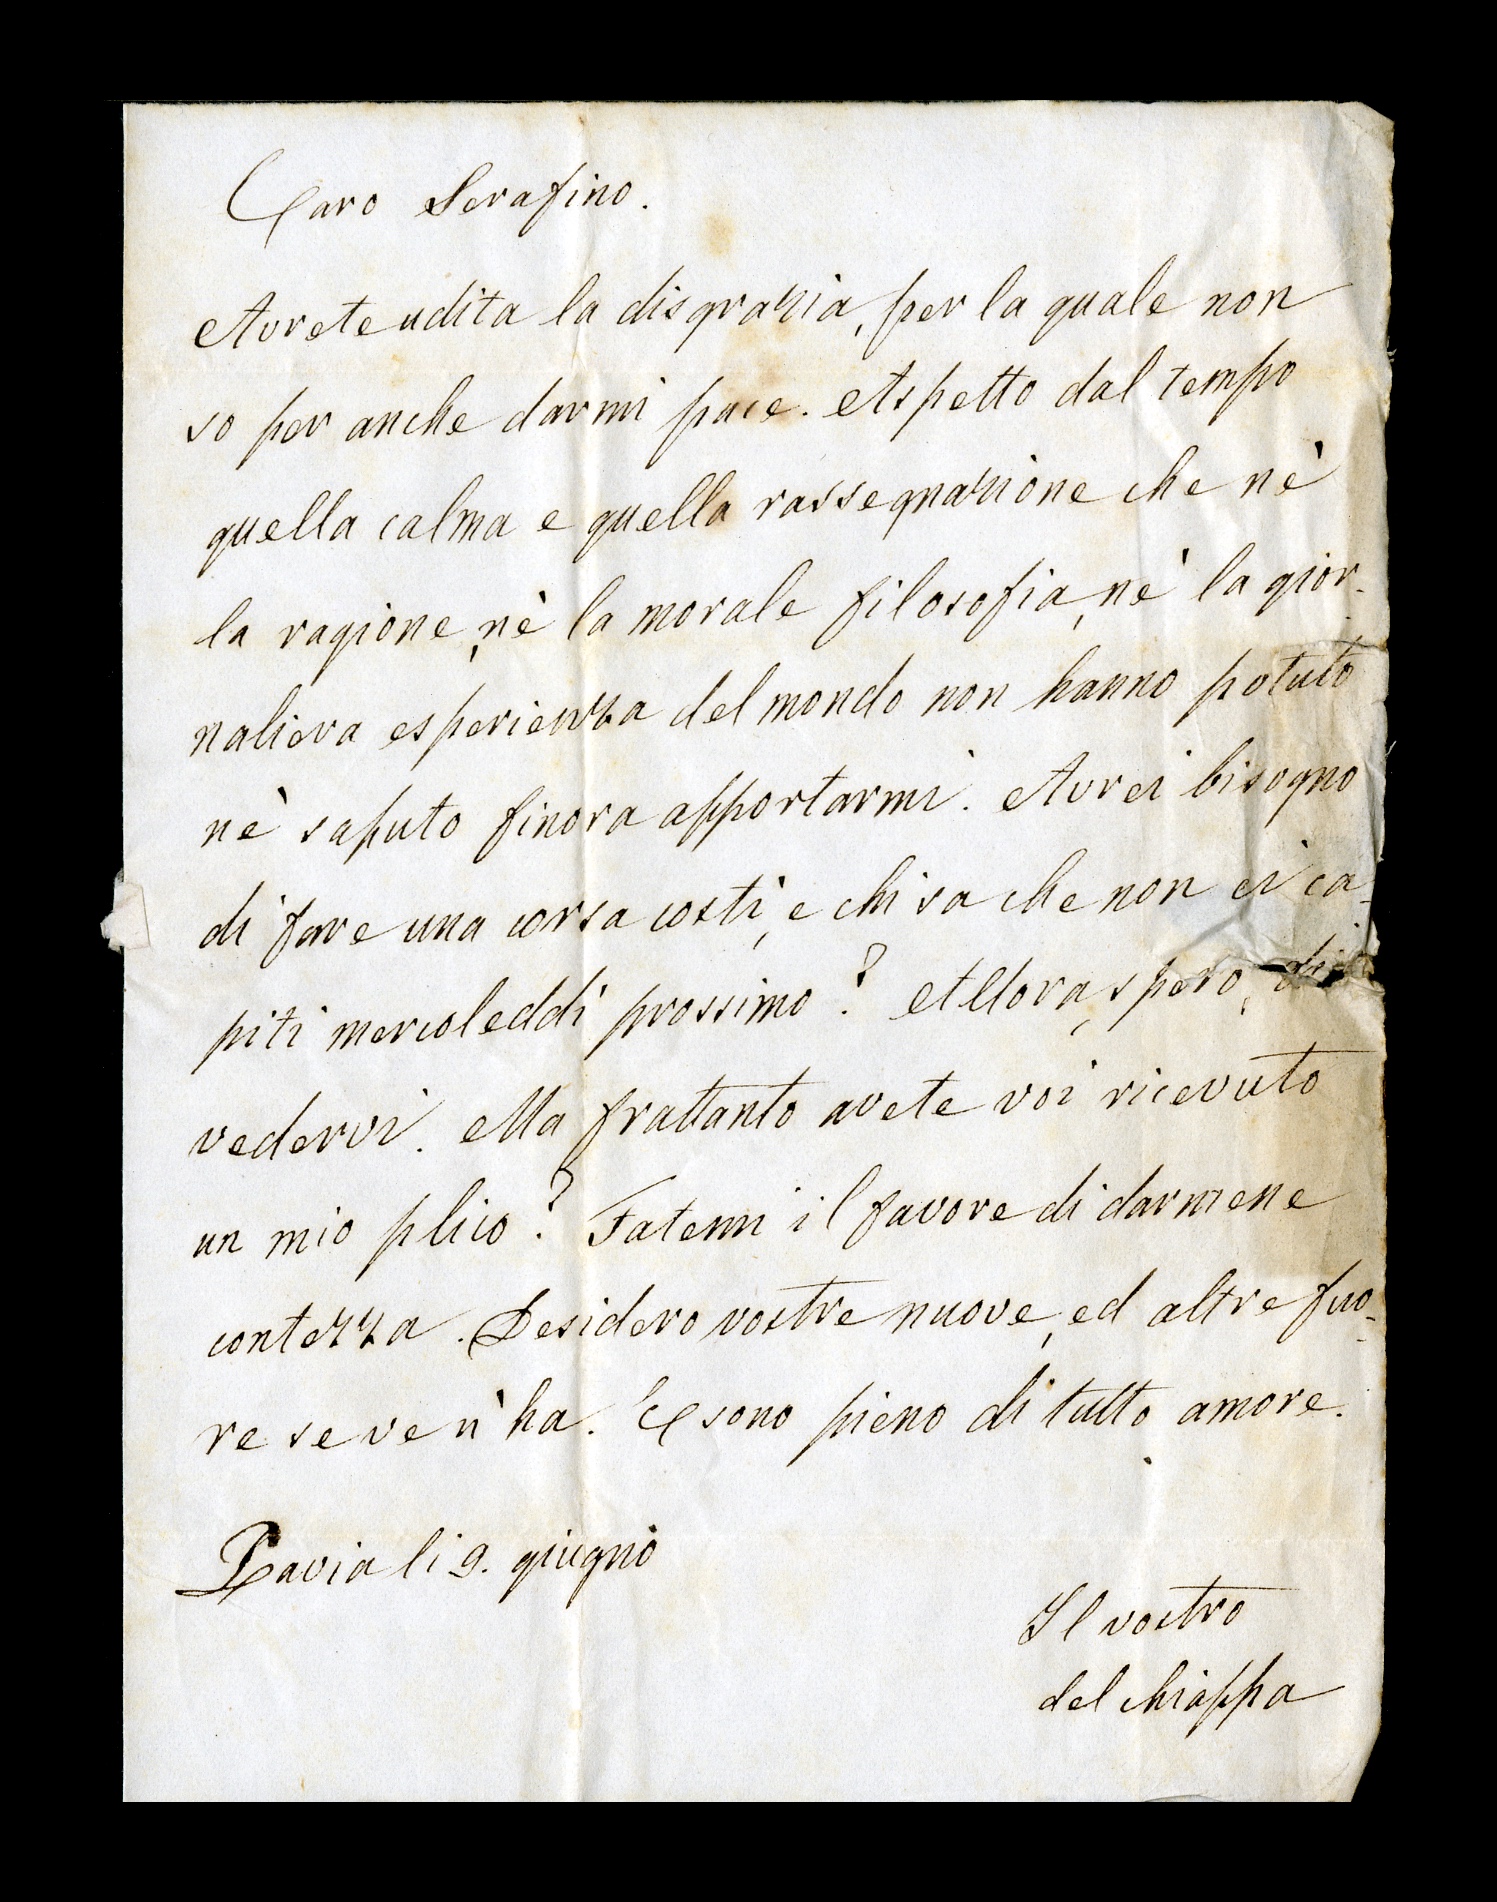 Caro Serafino.
Avrete udita la disgrazia, per la quale non
so per anche darmi pace. Aspetto dal tempo
quella calma e quella rassegnazione che nè
la ragione, nè la morale filosofia, nè la gior-
naliera esperienza del mondo non hanno potuto
nè saputo finora apportarmi. Avrei bisogno
di fare una corsa costì, e chi sa che non ci ca-
piti mercoleddì prossimo? Allora, spero, di
vedervi. Ma frattanto avete voi ricevuto
un mio plico? Fatemi il favore di darmene
contezza. Desidero vostre nuove, ed altre fuo-
re se ve n'ha. E sono pieno di tutto amore.
Pavia li 9. giugno
Il vostro
del Chiappa